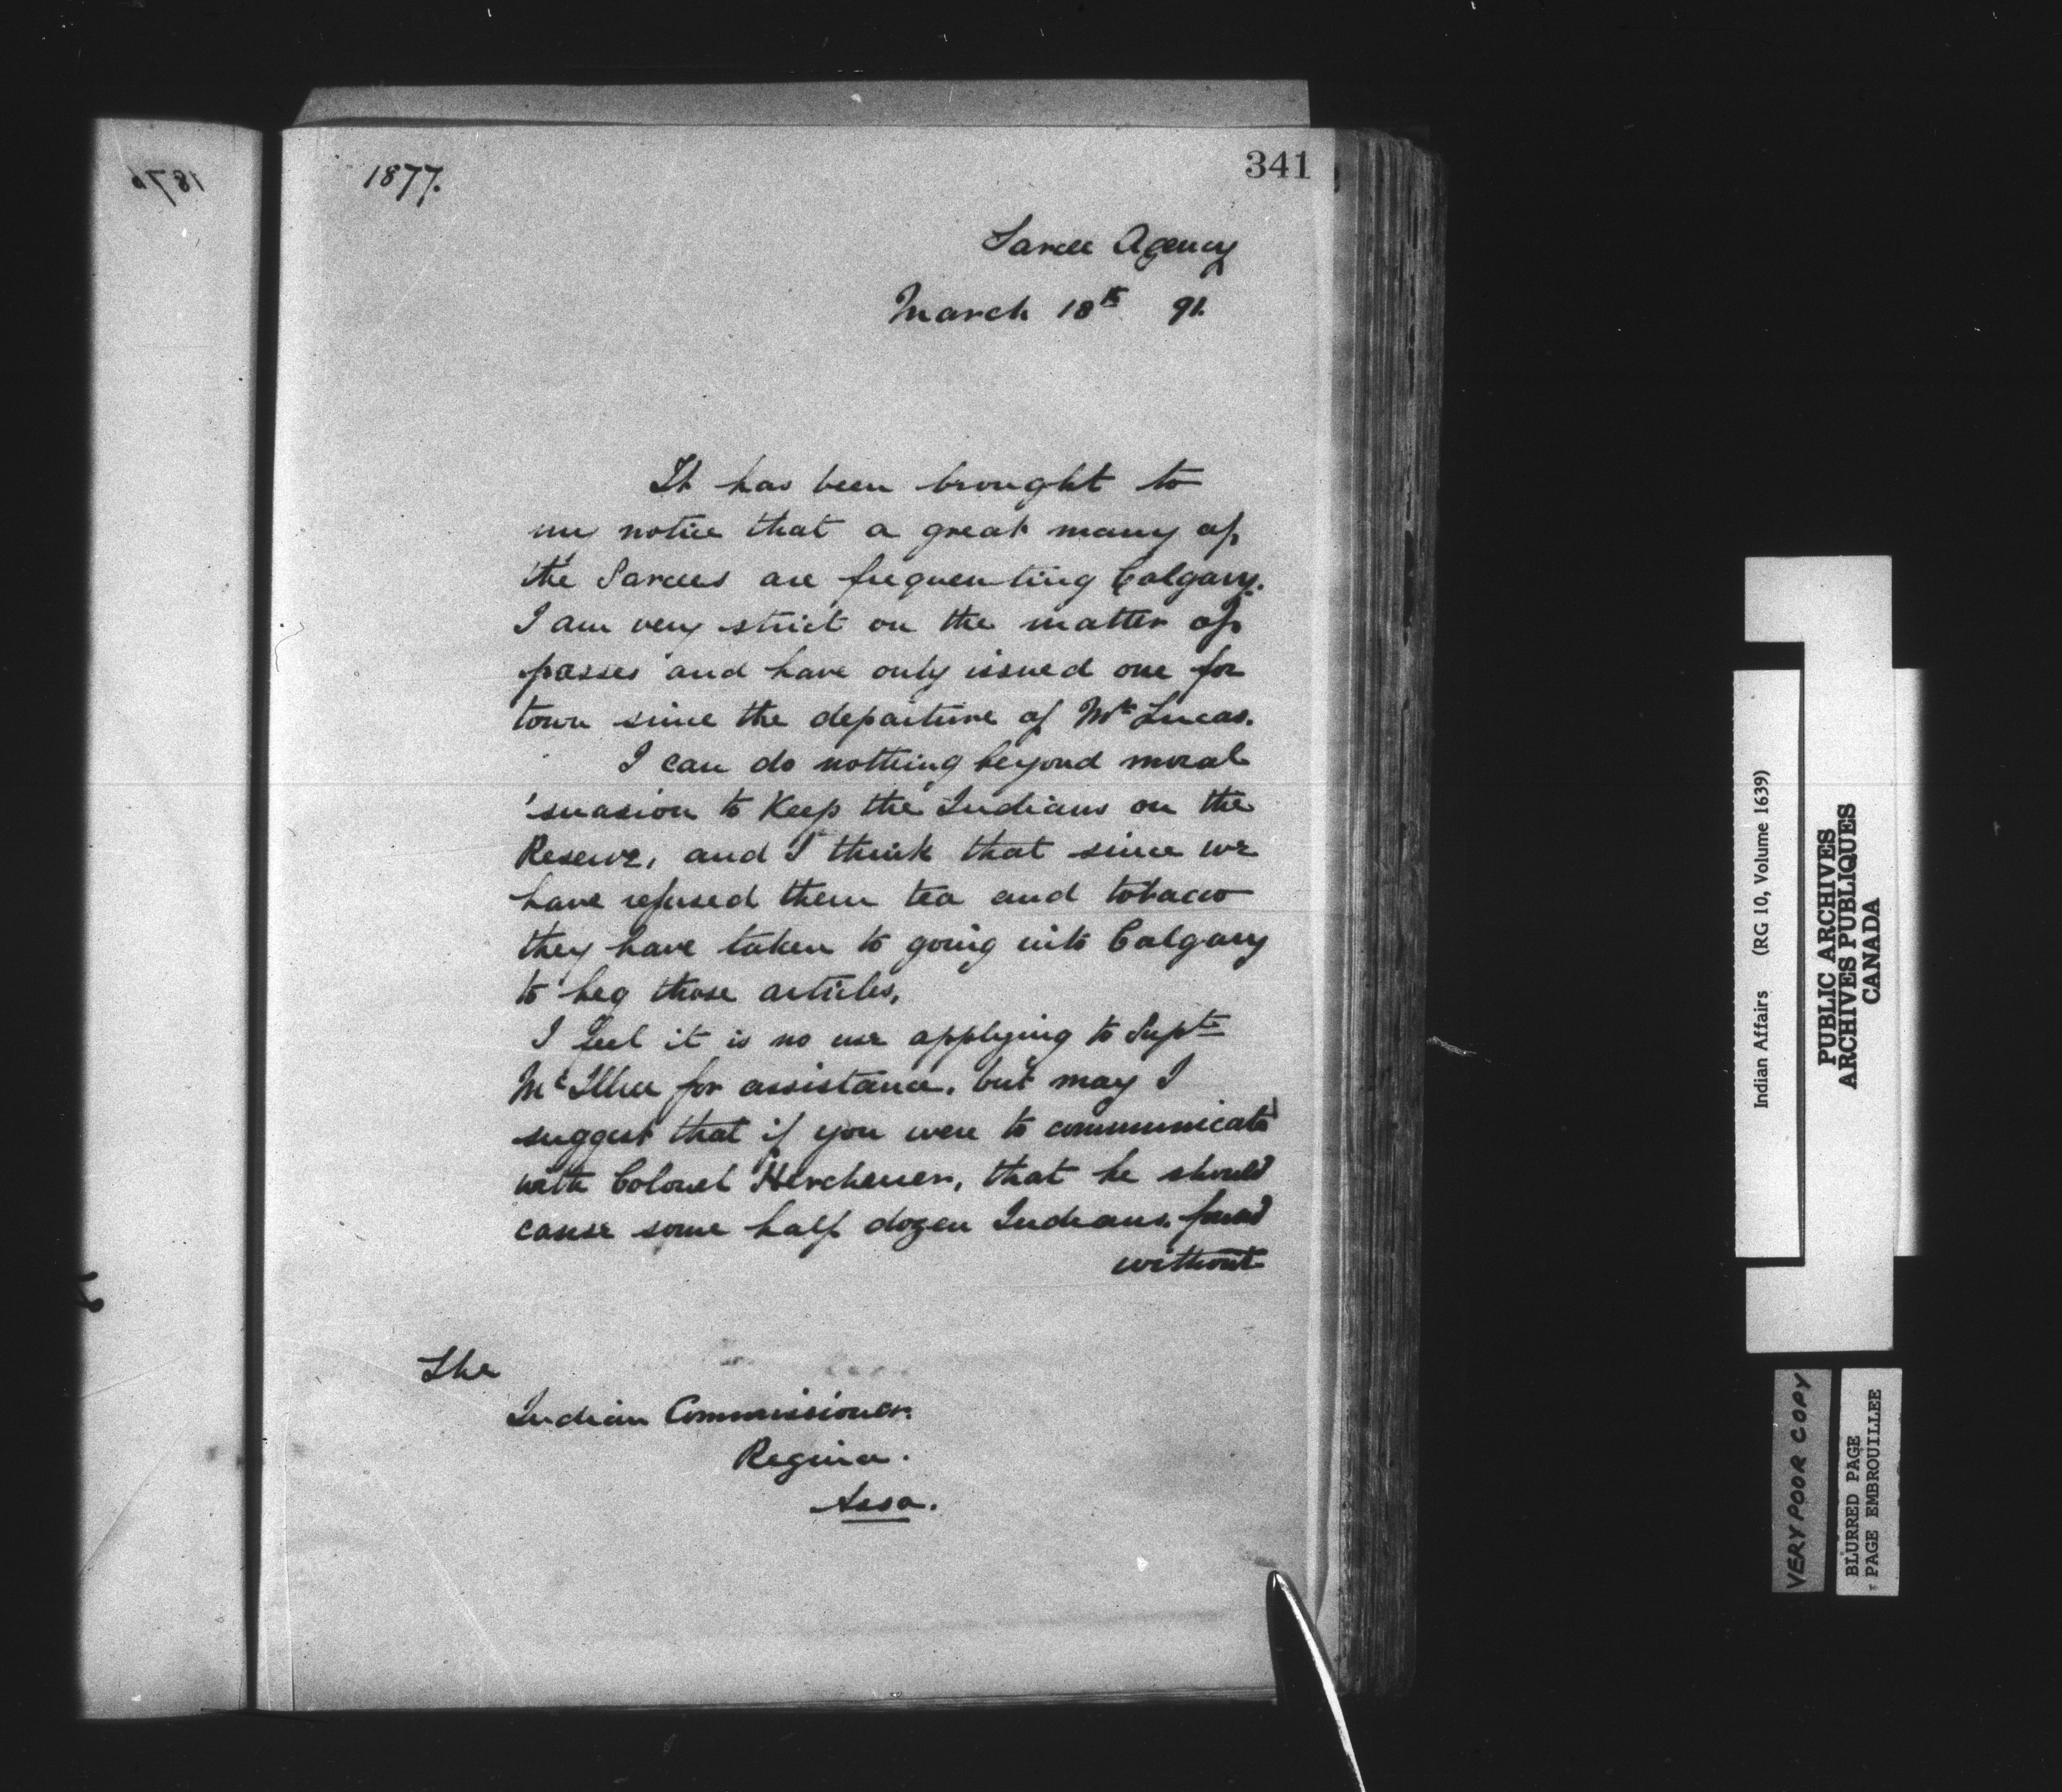 1876
1877.
341
Sarcee Agency
March 18th 91.
It has been brought to
my notice that a great many of
the Sarcees are frequenting Calgary.
I am very strict on the matter of
passes and have only issued one for
town since the departure of Mr Lucas.
I can do nothing beyond moral
suasion to keep the Indians on the
Reserve, and I think that since we
have refused them tea and tobacco
they have taken to going into Calgary
to beg those articles,
I feel it is no use applying to Supt
McIllree for assistance, but may I
suggest that if you were to communicate
with Colonel Herchemer, that he should
cause some half dozen Indians found
without
The
Indian Commissioner.
Regina.
Assa.
Indian Affairs (RG 10, Volume 1639)
PUBLIC ARCHIVES
ARCHIVES PUBLIQUES
CANADA
VERY POOR COPY
BLURRED PAGE
PAGE EMBROUILLEE